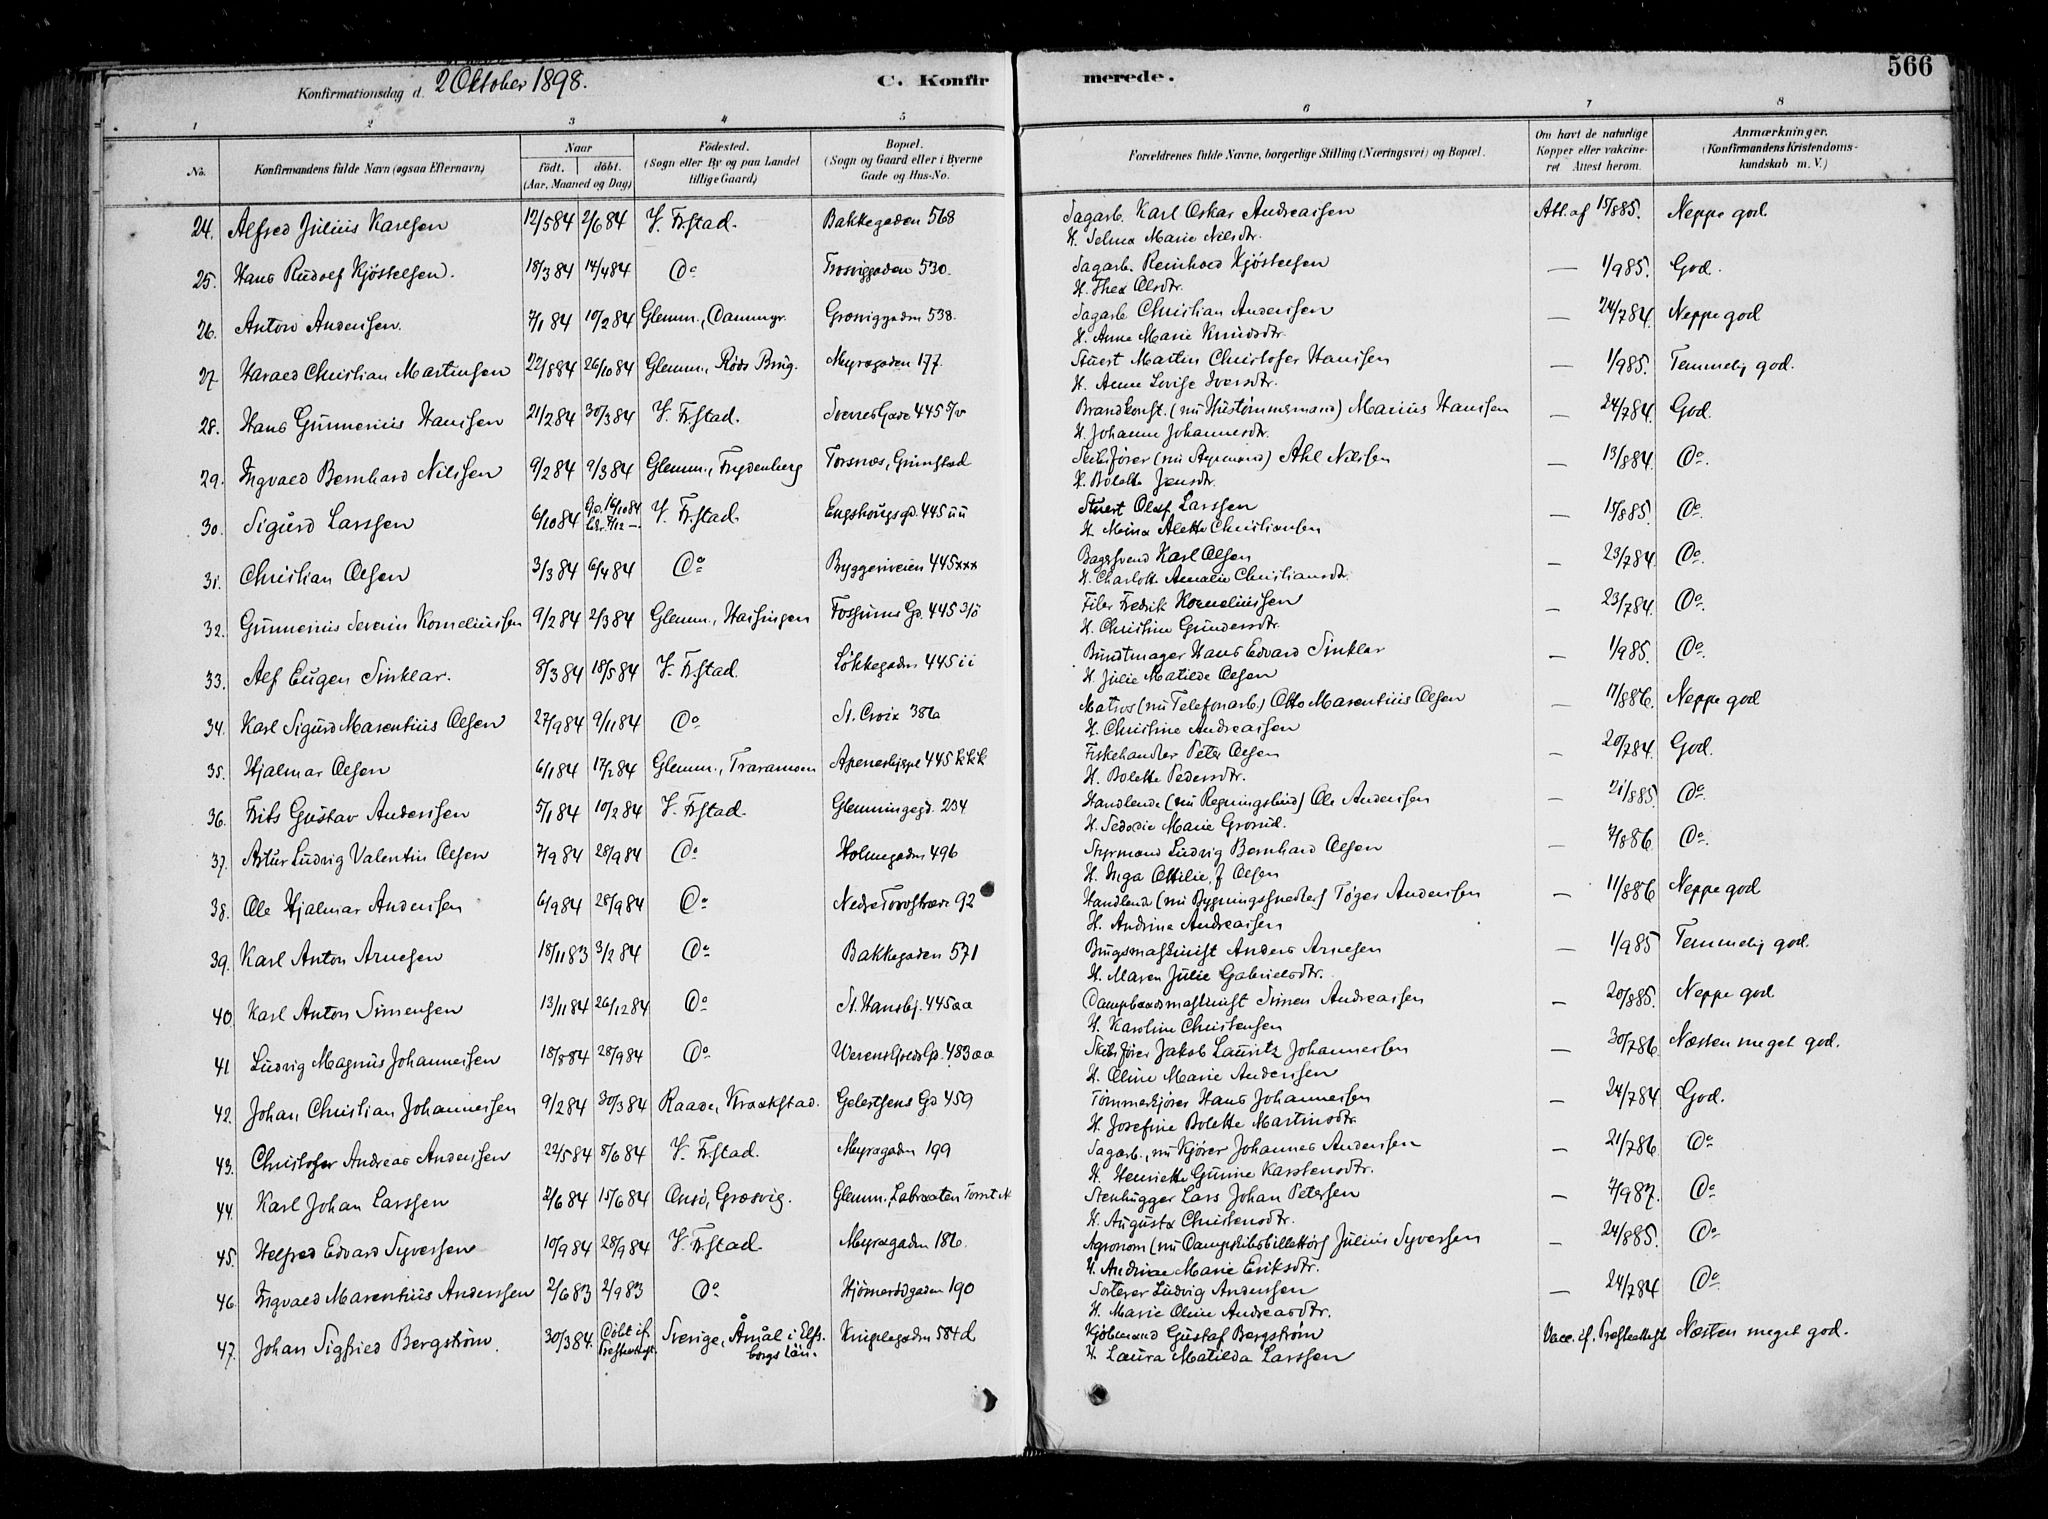 566
Konfirmationsdag d. 2 Oktober 1898.
C. Konfirmerede.
1 2 3 4 5 6 7 8
No. Konfirmandens fulde Navn (ogsaa Efternavn) Naar födt. döbt. (Aar, Maaned og Dag) Födested. (Sogn eller By og paa Landet tillige Gaard) Bopæl. (Sogn og Gaard eller i Byerne Gade og Hus-No. Forældrenes fulde Navne, borgerlige Stilling (Næringsvei) og Bopæl. Om havt de naturlige Kopper eller vakcineret Attest herom. Anmærkninger. (Konfirmandens Kristendomskundskab m. V.)
24. Alfred Julius Karlsen 12/5 84 2/6 84 V. Fr.stad. Bakkegaden 568 Sagarb. Karl Oskar Andreassen Att. af 15/8 85. Neppe god.
H. Selma Marie Nilsdtr.
25. Hans Rudolf Kjöstelsen. 18/3 84 14/4 84 Do Trosviggaden 530. Sagarb. Reinhard Kjöstelsen — 1/9 85. God.
H. Thea Olsdtr.
26. Anton Anderssen. 7/1 84 10/2 84 Glemm., Dammyr. Grosviggaden 538. Sagarb. Christian Anderssen — 24/7 84. Neppe god
H. Anne Marie Knudsdtr.
27. Harald Christian Martinsen 22/8 84 26/10 84 Glemm., Röds Brug. Myragaden 177. Stuert Martin Christofer Hanssen — 1/9 85. Temmelig god.
H. Anne Lovise Iversdtr.
28. Hans Gunnerius Hanssen 21/2 84 30/3 84 V. Fr.stad. Sverres Gade 445 Brandkonst. (nu Hustømmermand) Marius Hanssen — 24/7 84. God.
H. Johanne Johannesdtr.
29. Ingvald Bernhard Nilssen 9/2 84 9/3 84 Glemm., Frydenberg Torsnæs, Grimstad Skibsfører (nu Styrmand) Ahl Nilssen — 13/8 84. Do.
H. Bolette Jensdtr.
30. Sigurd Larssen 6/10 84 16/10 84 V. Fr.stad. Engshougsgd. 445 uu Stuert Olaf Larssen — 15/8 85. Do.
H. Mina Alette Christiansen
31. Christian Olsen 3/3 84 6/4 84 Do Byggeriveien 445xxx Bagersvend Karl Olsen — 23/7 84. Do.
H. Charlotte Amalie Christiansdtr.
32. Gunnerius Severin Korneliussen 9/2 84 2/3 84 Glemm., Hassingen Fossums Gd. 445 3/ö Filer Fredrik Korneliussen — 23/7 84. Do.
H. Christine Gundersdtr.
33. Alf Eugen Sinklar. 9/3 84 18/5 84 V. Fr.stad. Løkkegaden 445 ii Bundtmager Hans Edvard Sinklar — 1/9 85. Do.
H. Julie Matilde Olsen
34. Karl Sigurd Marentius Olsen 27/9 84 9/11 84 Do St. Croix 386a Matros (nu Telefonarb.) Otto Marentius Olsen — 17/8 86. Neppe god
H. Christine Andreassen
35. Hjalmar Olsen 6/1 84 17/2 84 Glemm., Traramoen Apenesfjeld 445 kkk Fiskehandler Peter Olsen — 20/7 84. God.
H. Bolette Pedersdtr.
36. Frits Gustav Anderssen 5/1 84 10/2 84 V. Fr.stad. Glemmingegd. 234 Handlende (nu Regningsbud) Ole Anderssen — 21/8 85. Do.
H. Sedolie Marie Grorud.
37. Artur Ludvig Valentin Olsen 7/9 84 28/9 84 Do Holmegaden 496 Styrmand Ludvig Bernhard Olsen — 7/8 86. Do.
H. Inga Ottilie f. Olsen
38. Ole Hjalmar Anderssen 6/9 84 28/9 84 Do Nedre Torvstræde 92 Handlend. (nu Bygningssnedker) Töger Anderssen — 11/8 86 Neppe god
H. Andrine Andreassen
39. Karl Anton Arnesen 18/11 83 3/2 84 Do Bakkegaden 571 Brugsmaskinist Anders Arnesen — 1/9 85 Temmelig god.
H. Maren Julie Gabrielsdtr.
40. Karl Anton Simensen 13/11 84 26/12 84 Do St. Hansfj. 445aa Dampbaadsmaskinist Simen Andreassen — 20/8 85. Neppe god
H. Karoline Christensen
41. Ludvig Magnus Johannessen 18/8 84 28/9 84 Do Werenskiolds Gd. 483aa Skibsfører Jakob Lauritz Johannessen — 30/7 86. Næsten meget god.
H. Oline Marie Anderssen
42. Johan Christian Johannessen 9/2 84 30/3 84 Raade, Kraakstad. Gelertsens Gd 459 Tömmerkjörer Hans Johannessen — 24/7 84 God.
H. Josefine Bolette Martinsdtr.
43. Christofer Andreas Anderssen 22/5 84 8/6 84 V. Fr.stad. Myragaden 199 Sagarb., nu Kjörer Johannes Anderssen — 21/7 86. Do
H. Henriette Gurine Karstensdtr.
44. Karl Johan Larssen 2/6 84 15/6 84 Onsö, Græsvig. Glemm., Labraaten Stenhugger Lars Johan Petersen — 7/9 87. Do.
H. Augusta Christensdtr.
45. Helfred Edvard Syverssen 10/9 84 28/9 84 V. Fr.stad. Myragaden 186. Agronom (nu Dampskibsbillettör) Julius Syverssen — 24/8 85. Do
H. Andrine Marie Eriksdtr.
46. Ingvald Marentius Anderssen 2/6 83 2/9 83 Do Hjörnerödgaden 190 Sorterer Ludvig Anderssen — 24/7 84 Do
H. Marie Oline Andreasdtr.
47. Johan Sigfried Bergström. 30/3 84. Döbt if. Presteattest. Sverige, Åmål i Elfsborgs Län. Kniplegaden 584d Kjöbmand Gustaf Bergström Vacc. if. Presteattest Næsten meget god.
H. Laura Matilda Larssen